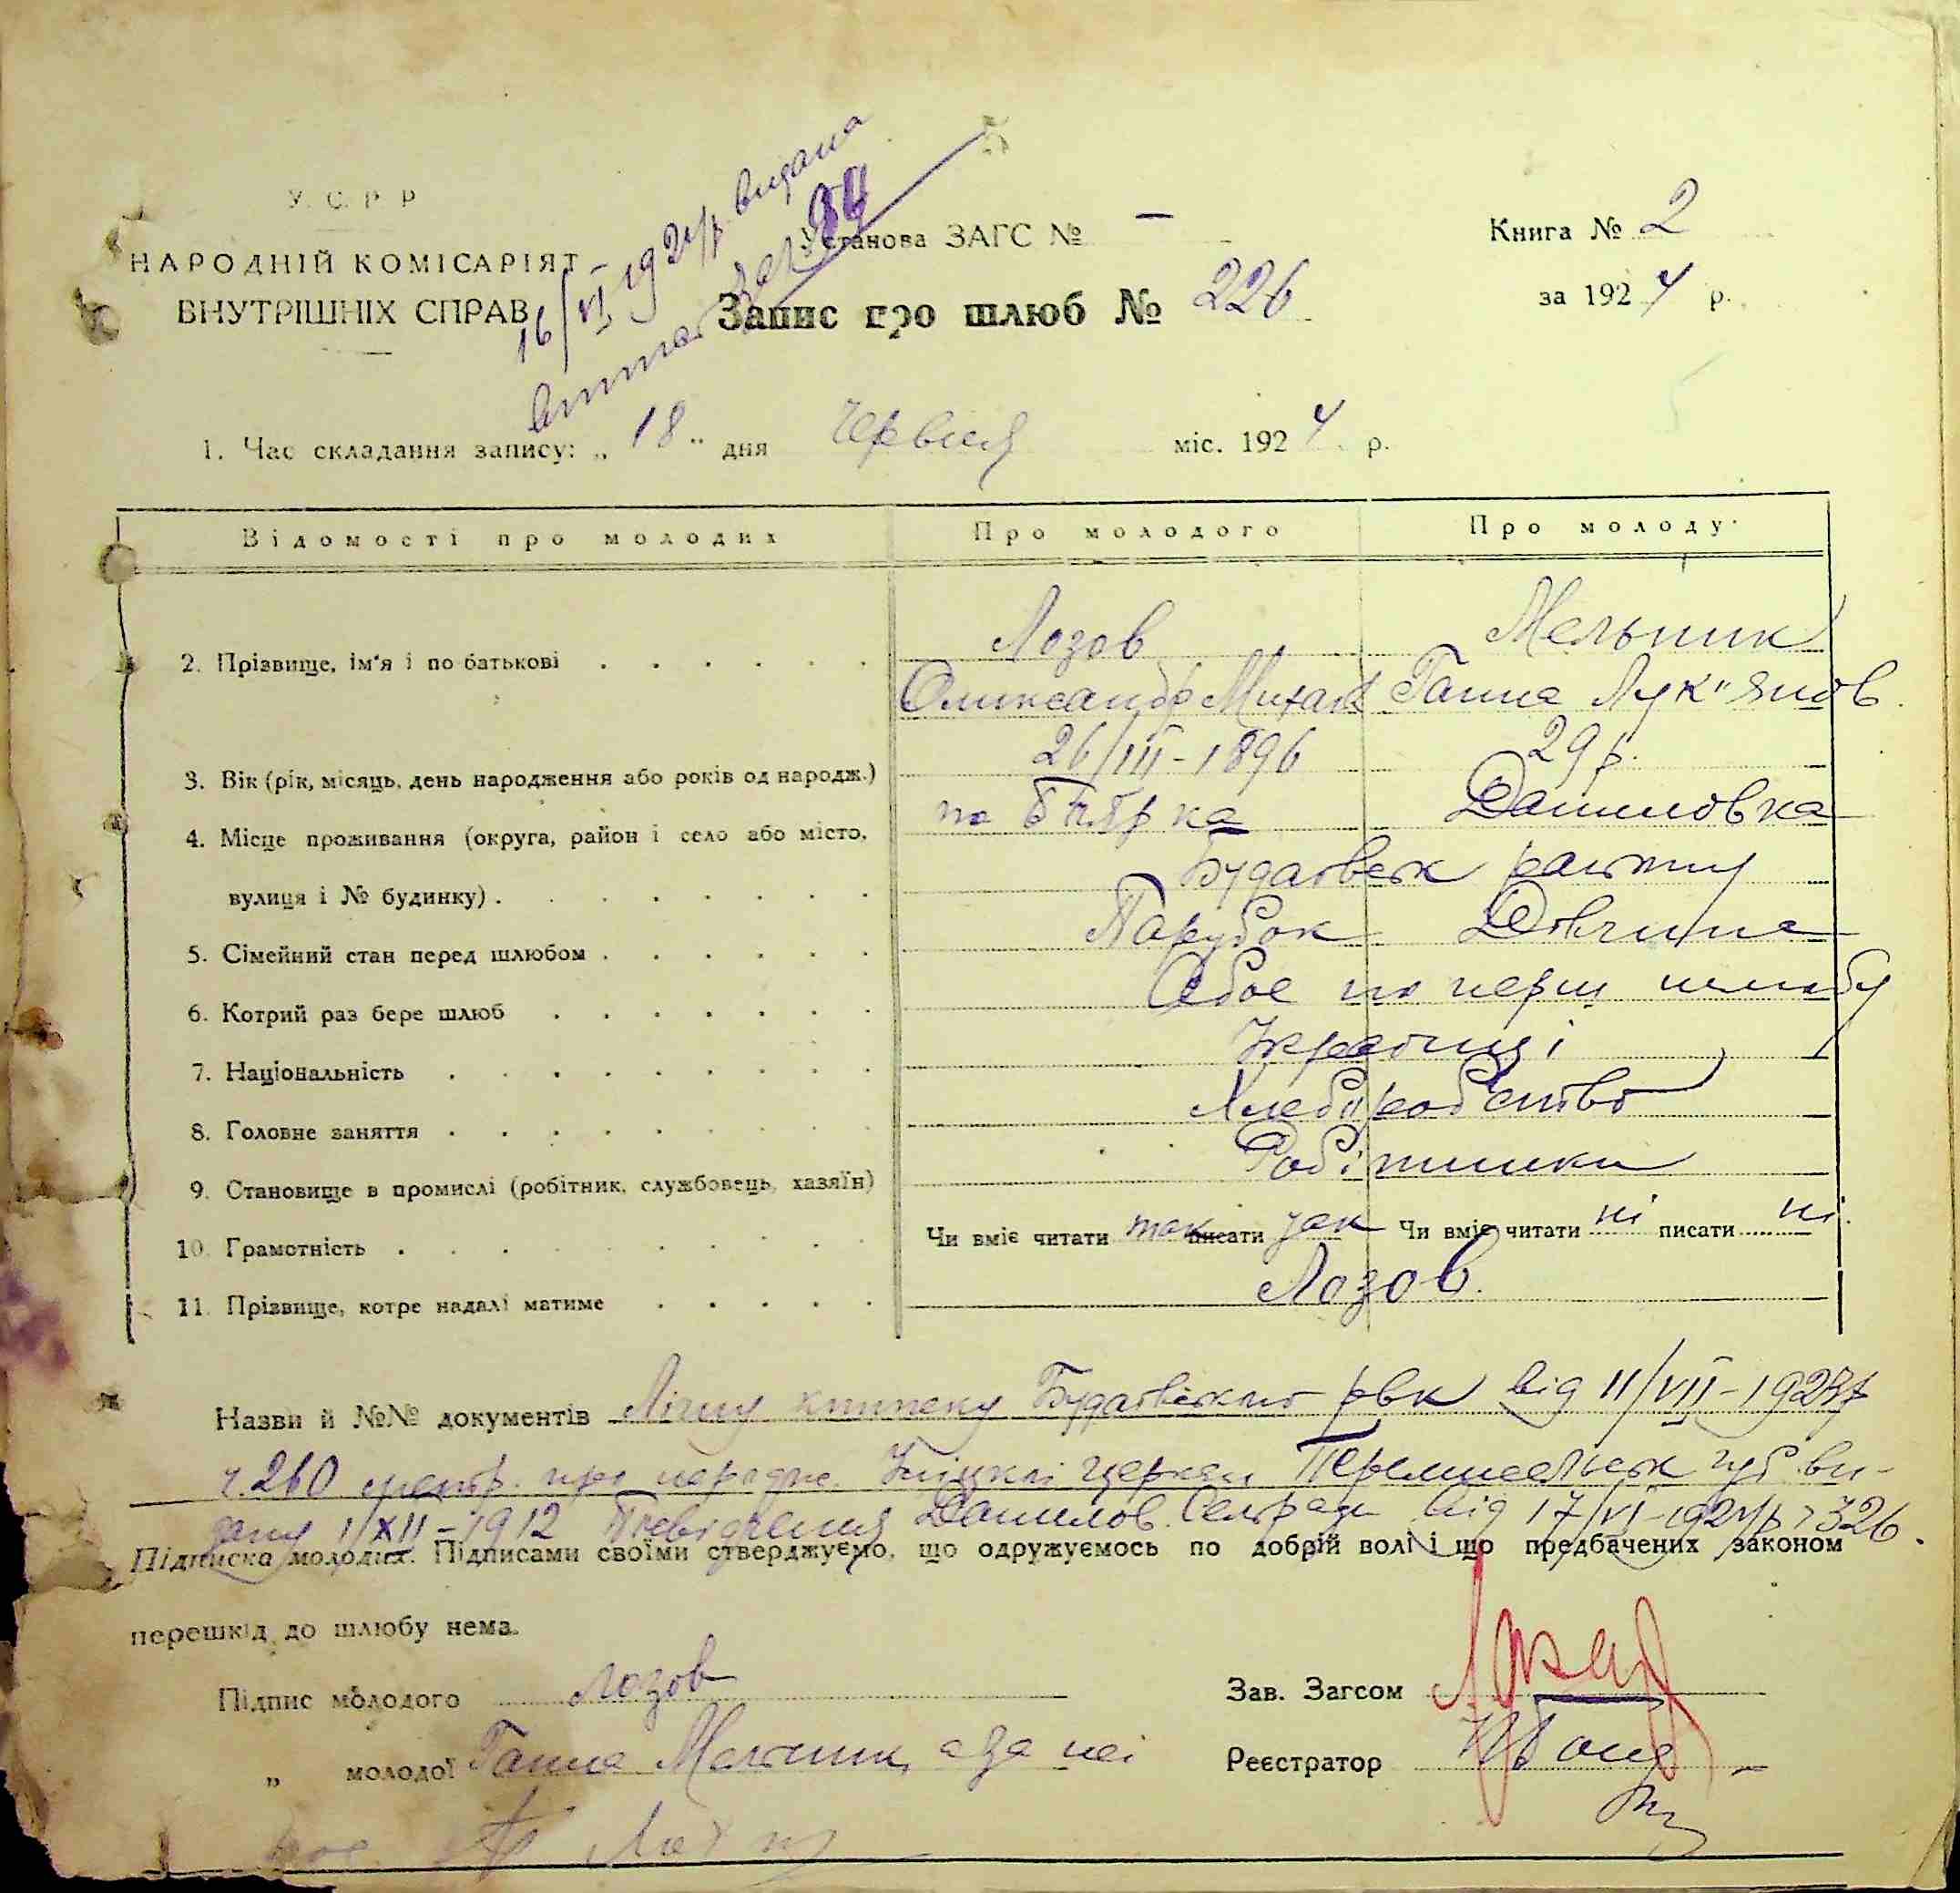 У. С. Р. Р
НАРОДНІЙ КОМІСАРІЯТ
ВНУТРІШНІХ СПРАВ
16/VI 1924 р. видана
94
Установа ЗАГС № —
Запис про шлюб № 226
Книга № 2
за 1924 р.
1. Час складання запису: „18" дня Червня міс. 1924 р.
Відомості про молодих Про молодого Про молоду
2. Прізвище, ім'я і по батькові Лозов Мельник
Олександр Михайл Ганна Лук"янов
3. Вік (рік, місяць, день народження або років од народж.) 26/III-1896 29 р.
4. Місце проживання (округа, район і село або місто, Даниловка
вулиця і № будинку)
5. Сімейний стан перед шлюбом Парубок Дівчина
6. Котрий раз бере шлюб Обоє по перш шлюбу
7. Національність Українці
8. Головне заняття
9. Становище в промислі (робітник, службовець, хазяїн) Робітники
10. Грамотність Чи вміє читати так писати так Чи вміє читати ні писати ні.
11. Прізвище, котре надалі матиме Лозов.
Назви й №№ документів рвк від 11/VII-1923р
ч. 260 церкви губ ви-
дану 1/XII-1912 Посвідчення Данилов. Сельради від 17/VI-1924р 326.
Підписка молодих. Підписами своїми стверджуємо, що одружуємось по добрій волі і що предбачених законом
перешкід до шлюбу нема.
Підпис молодого Лозов
Зав. Загсом
„ молодої Ганна Мельник, а за неї
Реєстратор